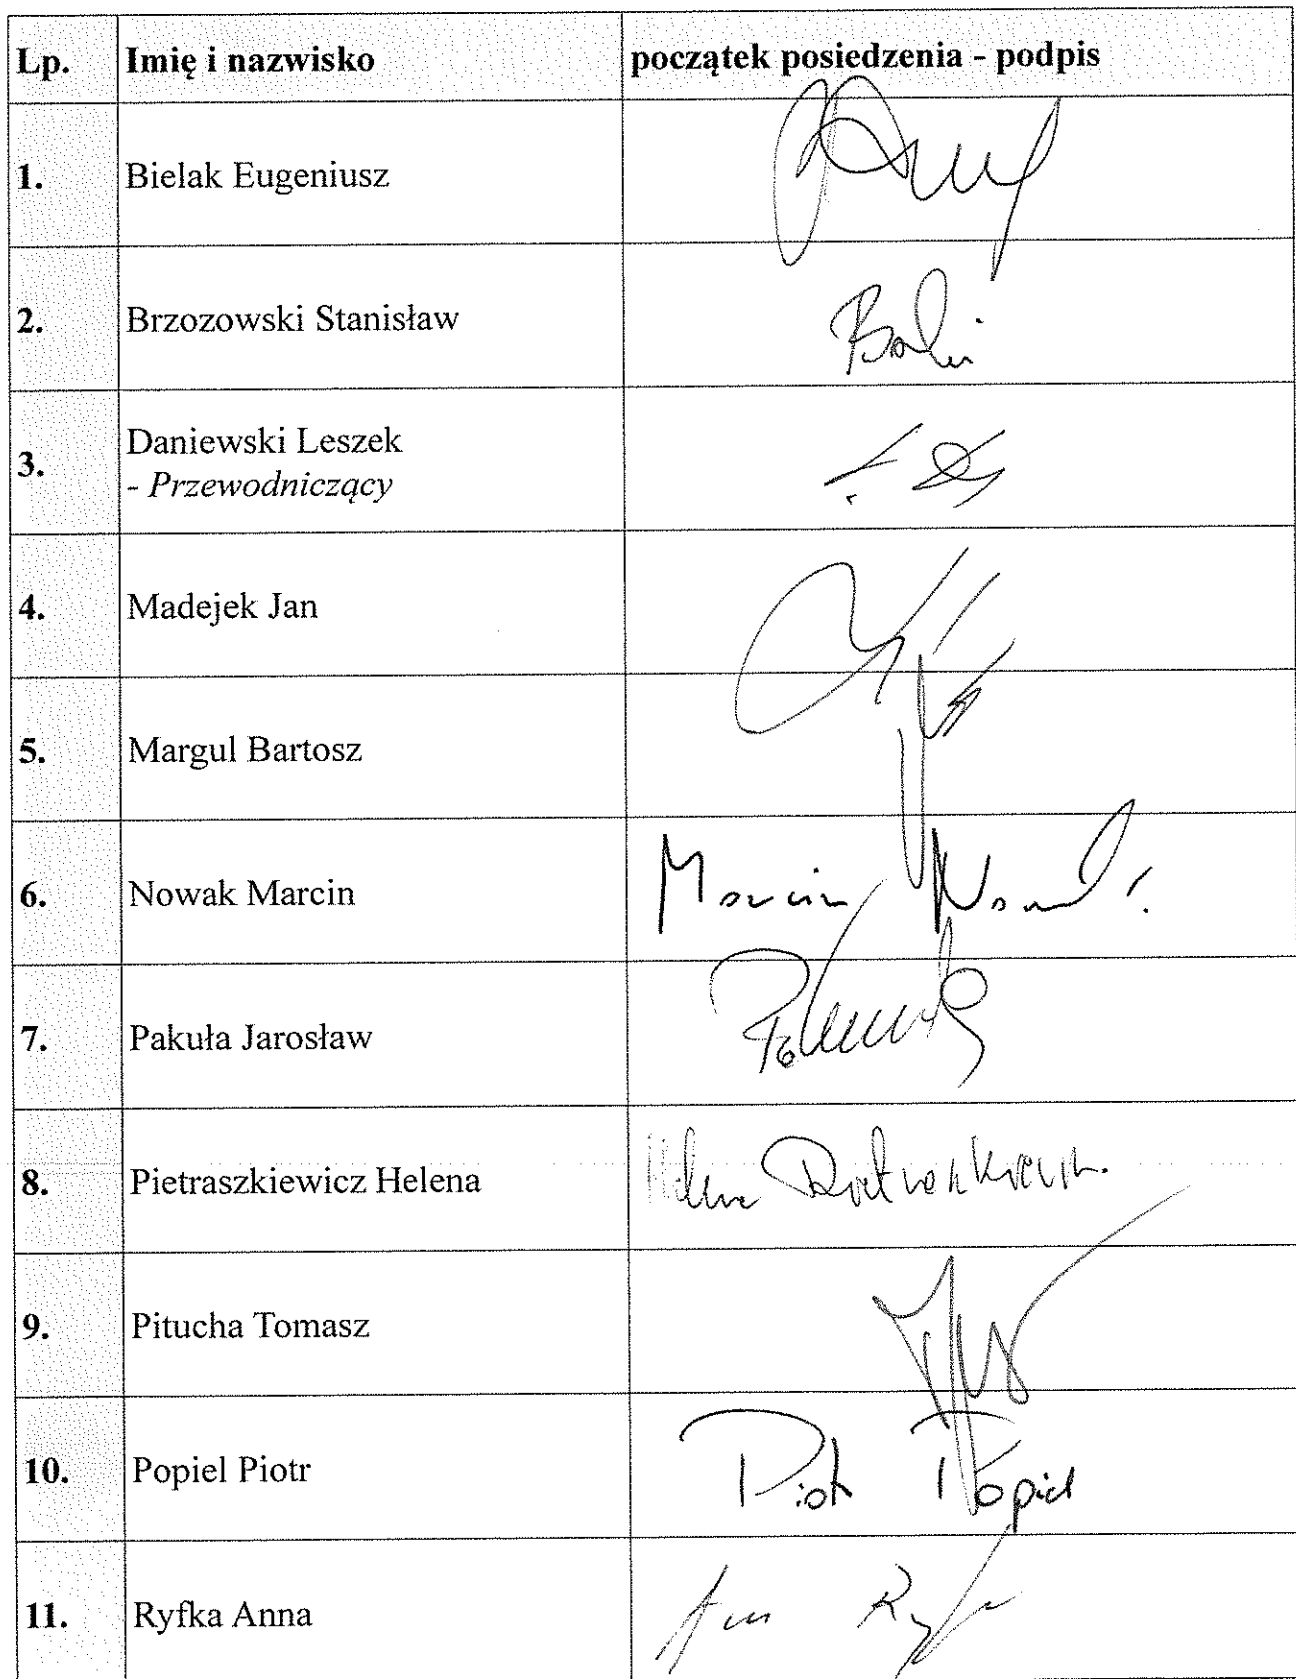 Lp. Imię i nazwisko początek posiedzenia - podpis
1. Bielak Eugeniusz
2. Brzozowski Stanisław
3. Daniewski Leszek
- Przewodniczący
4. Madejek Jan
5. Margul Bartosz
6. Nowak Marcin Marcin Nowak
7. Pakuła Jarosław
8. Pietraszkiewicz Helena Helena Pietraszkiewicz
9. Pitucha Tomasz
10. Popiel Piotr Piotr Popiel
11. Ryfka Anna